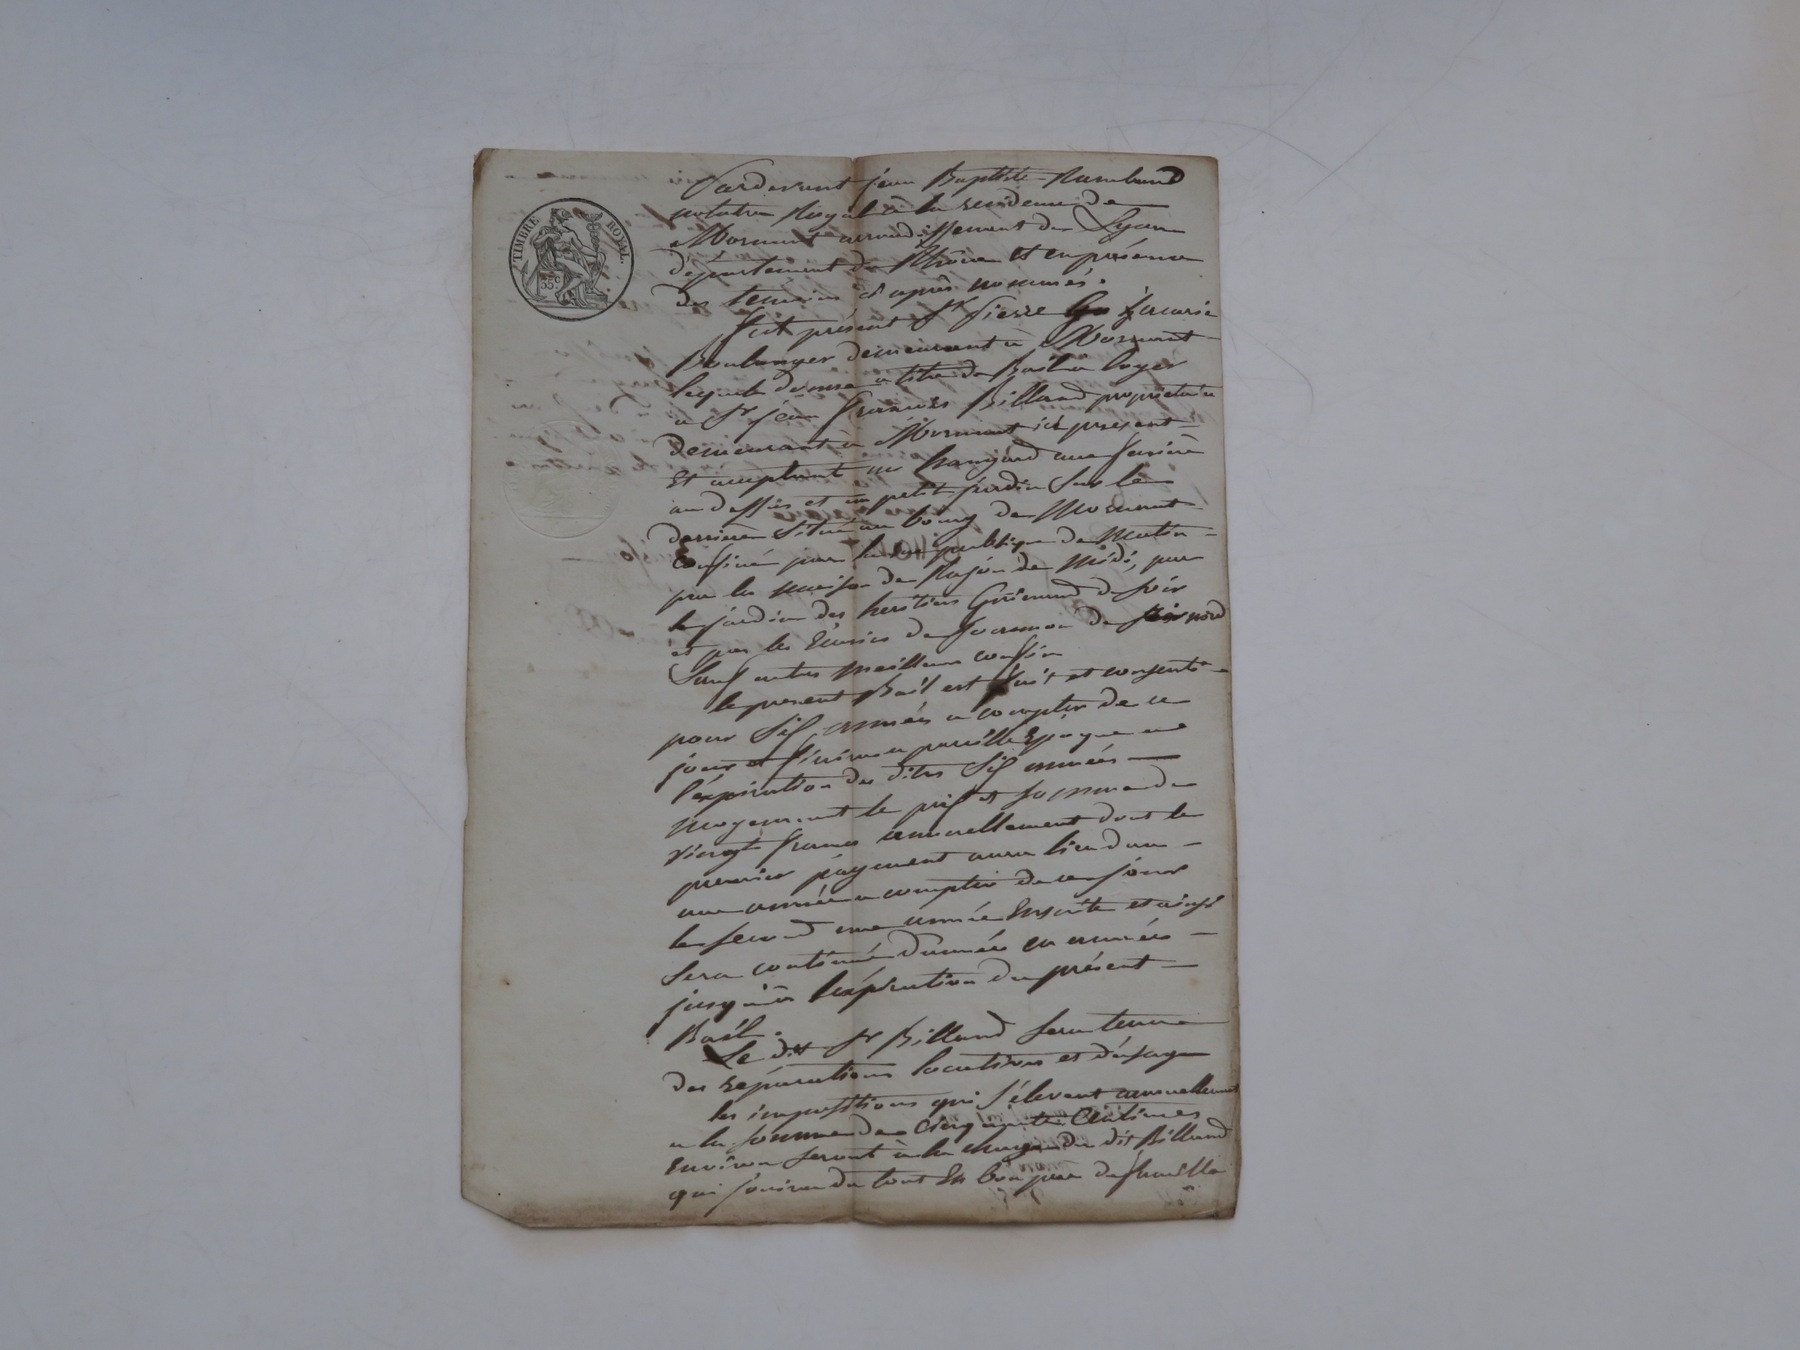 TIMBRE ROYAL.
35 c
Pardevant jean Baptiste Rambaud
notaire Royal à la residence de
Mornant arrondissement de Lyon
département du Rhône et en présence
des temoins ci après nommés.
fut présent Sr Pierre Zacarie
Boulanger demeurant à Mornant
lequel donne a titre de Bail a loyer
a Sr jean François Billard propriétaire
demeurant à Mornant ici present
Et acceptant un hangard une
au dessus et un petit jardin Sur le
derrière Situé au bourg de Mornant
Confiné par la rue publique de Matin
par la maison de de Midi, par
le jardin des heritiers de Soir
et par les Ecuries de de nord
Sauf autres Meilleurs confins
le present Bail est fait et consenti
pour Six années a compter de ce
jour et finira a pareille Epoque
l'expiration des dites Six années
moyennant le prix et somme de
vingt francs annuellement dont le
premier payement aura lieu dans
une année a compter de ce jour
le second une année Ensuite et ainsi
Sera continué d'années en années
jusqu'à l'expiration du présent
Bail.
Le dit Sr Billard Sera tenu
des réparations locatives et d'usage
les impositions qui S'élevent annuellement
a la somme de Cinquante Centimes
Environ Seront à la charge du dit Billard
qui jouira du tout En bon pere de famille